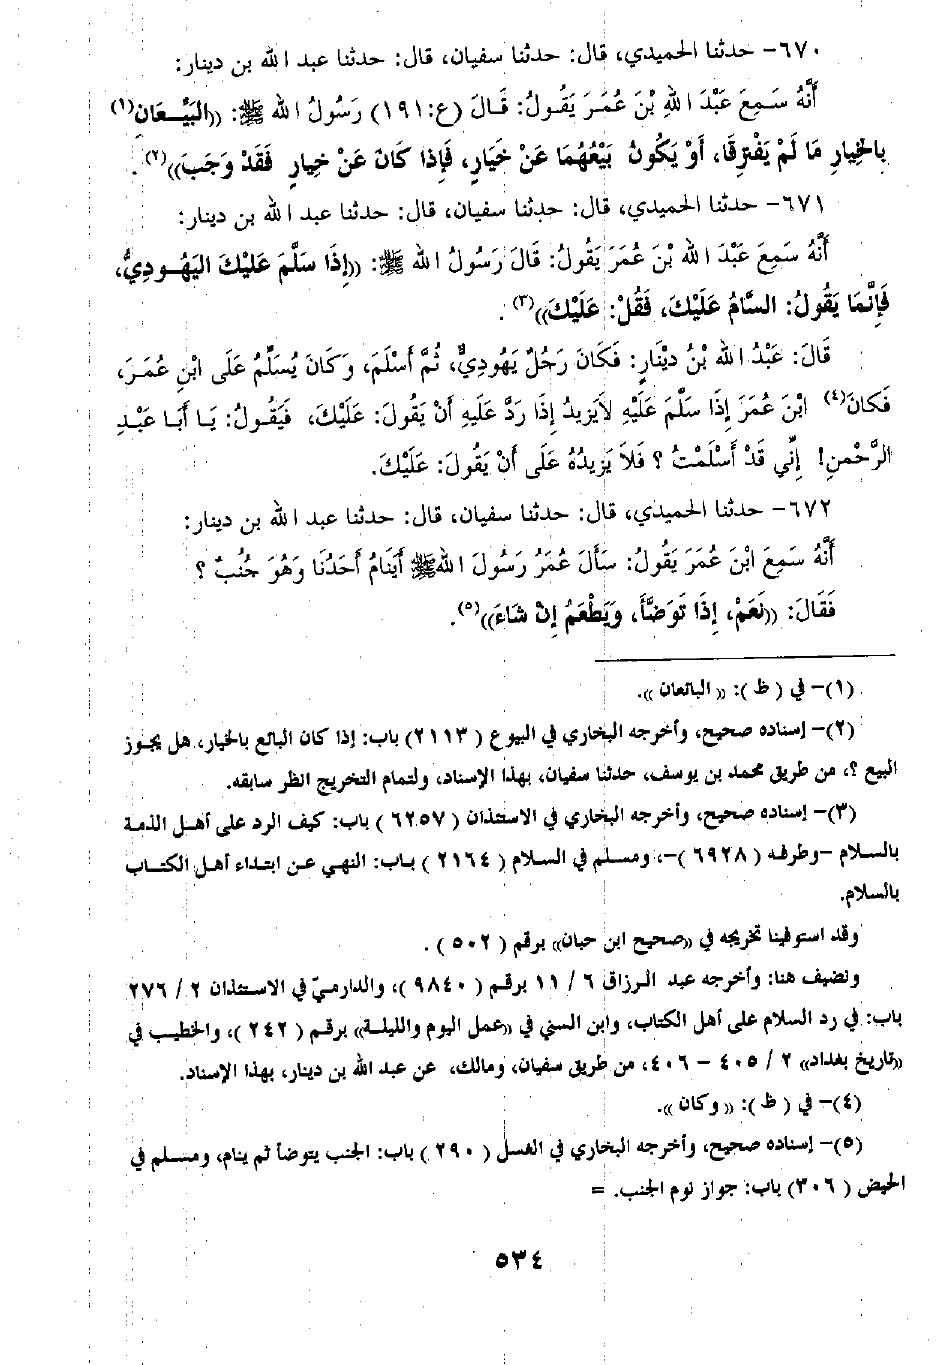 ٦٧٠- حدثنا الحميدي، قال: حدثنا سفيان، قال: حدثنا عبد الله بن دينار:
أَنَّهُ سَمِعَ عَبْدَ اللهِ بْنَ عُمَرَ يَقُولُ: قَالَ (ع:١٩١) رَسُولُ اللهِ ﷺ: ((البَيِّعَانِ(١)
بالخِيارِ مَا لَمْ يَفْتَرِقَا، أَوْ يَكُونُ بَيْعُهُمَا عَنْ خَيَارٍ، فَإِذا كَانَ عَنْ خِيارٍ فَقَدْ وَجَبَ))(٢).
٦٧١- حدثنا الحميدي، قال: حدثنا سفيان، قال: حدثنا عبد الله بن دينار:
أَنَّهُ سَمِعَ عَبْدَ اللهِ بْنَ عُمَرَ يَقُولُ: قَالَ رَسُولُ اللهِ ﷺ: ((إِذَا سَلَّمَ عَلَيْكَ اليَهُودِيُّ،
فَإِنَّمَا يَقُولُ: السَّامُ عَلَيْكَ، فَقُلْ: عَلَيْكَ))(٣).
قَالَ: عَبْدُ اللهِ بْنُ دِيْنَارٍ: فَكَانَ رَجُلٌ يَهُودِيٌّ، ثُمَّ أَسْلَمَ، وَكَانَ يُسَلِّمُ عَلَى ابْنِ عُمَرَ،
فَكَانَ(٤) ابْنَ عُمَرَ إِذَا سَلَّمَ عَلَيْهِ لاَيَزِيدُ إِذَا رَدَّ عَلَيهِ أَنْ يَقُولَ: عَلَيْكَ، فَيَقُولُ: يَا أَبَا عَبْدِ
الرَّحْمنِ! إِنِّي قَدْ أَسْلَمْتُ ؟ فَلاَ يَزِيدُهُ عَلَى أَنْ يَقُولَ: عَلَيْكَ.
٦٧٢- حدثنا الحميدي، قال: حدثنا سفيان، قال: حدثنا عبد الله بن دينار:
أَنَّهُ سَمِعَ ابْنَ عُمَرَ يَقُولُ: سَأَلَ عُمَرُ رَسُولَ اللهِ ﷺ أَيَنَامُ أَحَدُنَا وَهُوَ جُنُبٌ ؟
فَقَالَ: ((نَعَمْ، إِذَا تَوَضَّأَ، وَيَطْعَمُ إِنْ شَاءَ))(٥).
(١)- في ( ظ ): (( البائعان )).
(٢)- إسناده صحيح، وأخرجه البخاري في البيوع ( ٢١١٣ ) باب: إذا كان البائع بالخيار، هل يجوز
البيع ؟، من طريق محمد بن يوسف، حدثنا سفيان، بهذا الإسناد، ولتمام التخريج انظر سابقه.
(٣)- إسناده صحيح، وأخرجه البخاري في الاستئذان ( ٦٢٥٧ ) باب: كيف الرد على أهل الذمة
بالسلام -وطرفه ( ٦٩٢٨ )-، ومسلم في السلام ( ٢١٦٤ ) باب: النهي عن ابتداء أهل الكتاب
بالسلام.
وقد استوفينا تخريجه في ((صحيح ابن حبان)) برقم ( ٥٠٢ ) .
ونضيف هنا: وأخرجه عبد الرزاق ٦ / ١١ برقم ( ٩٨٤٠ )، والدارميّ في الاستئذان ٢ / ٢٧٦
باب: في رد السلام على أهل الكتاب، وابن السني في ((عمل اليوم والليلة)) برقم ( ٢٤٢ )، والخطيب في
((تاريخ بغداد)) ٢ / ٤٠٥ - ٤٠٦، من طريق سفيان، ومالك، عن عبد الله بن دينار، بهذا الإسناد.
(٤)- في ( ظ ): (( وكان )).
(٥)- إسناده صحيح، وأخرجه البخاري في الغسل ( ٢٩٠ ) باب: الجنب يتوضأ ثم ينام، ومسلم في
الحيض ( ٣٠٦ ) باب: جواز نوم الجنب. =
٥٣٤